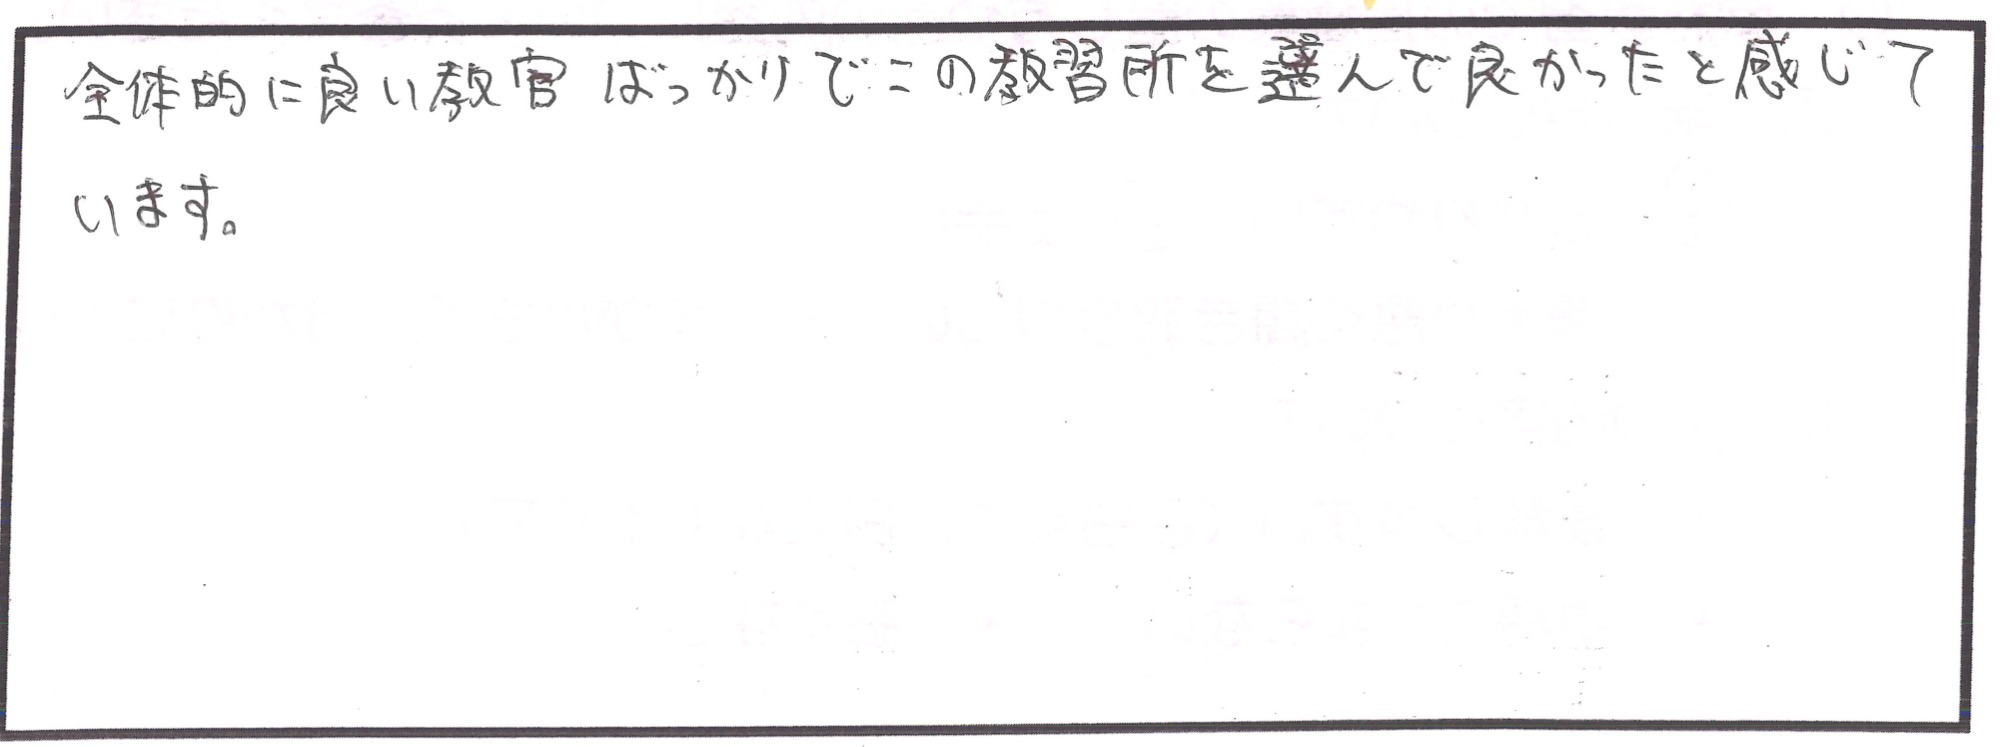 全体的に良い教官ばっかりでこの教習所を選んで良かったと感じて
います。